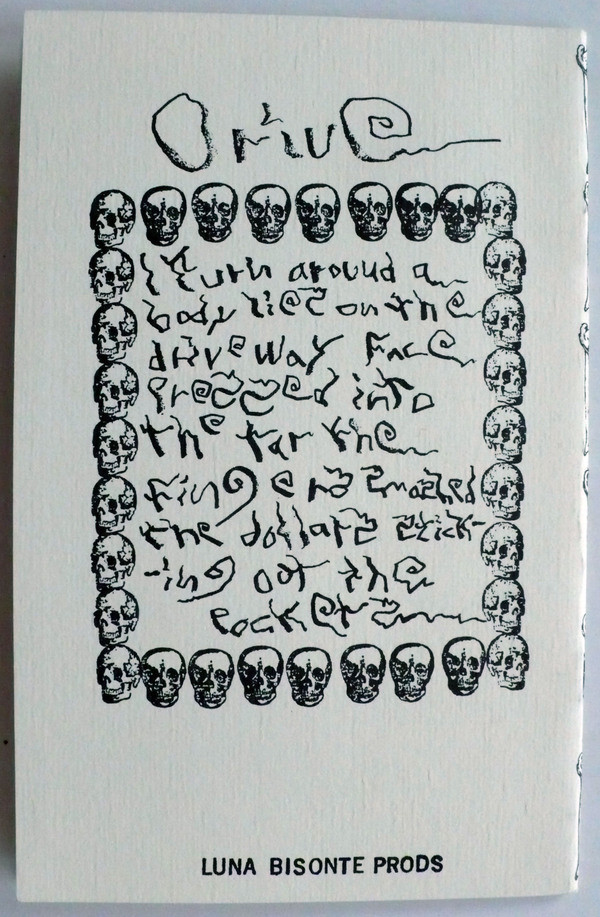 Drive
I turn around a
body lies on the
driveway face
pressed into
the tar the
fingers smashed
the dollars stick-
-ing out the
pockets
LUNA BISONTE PRODS